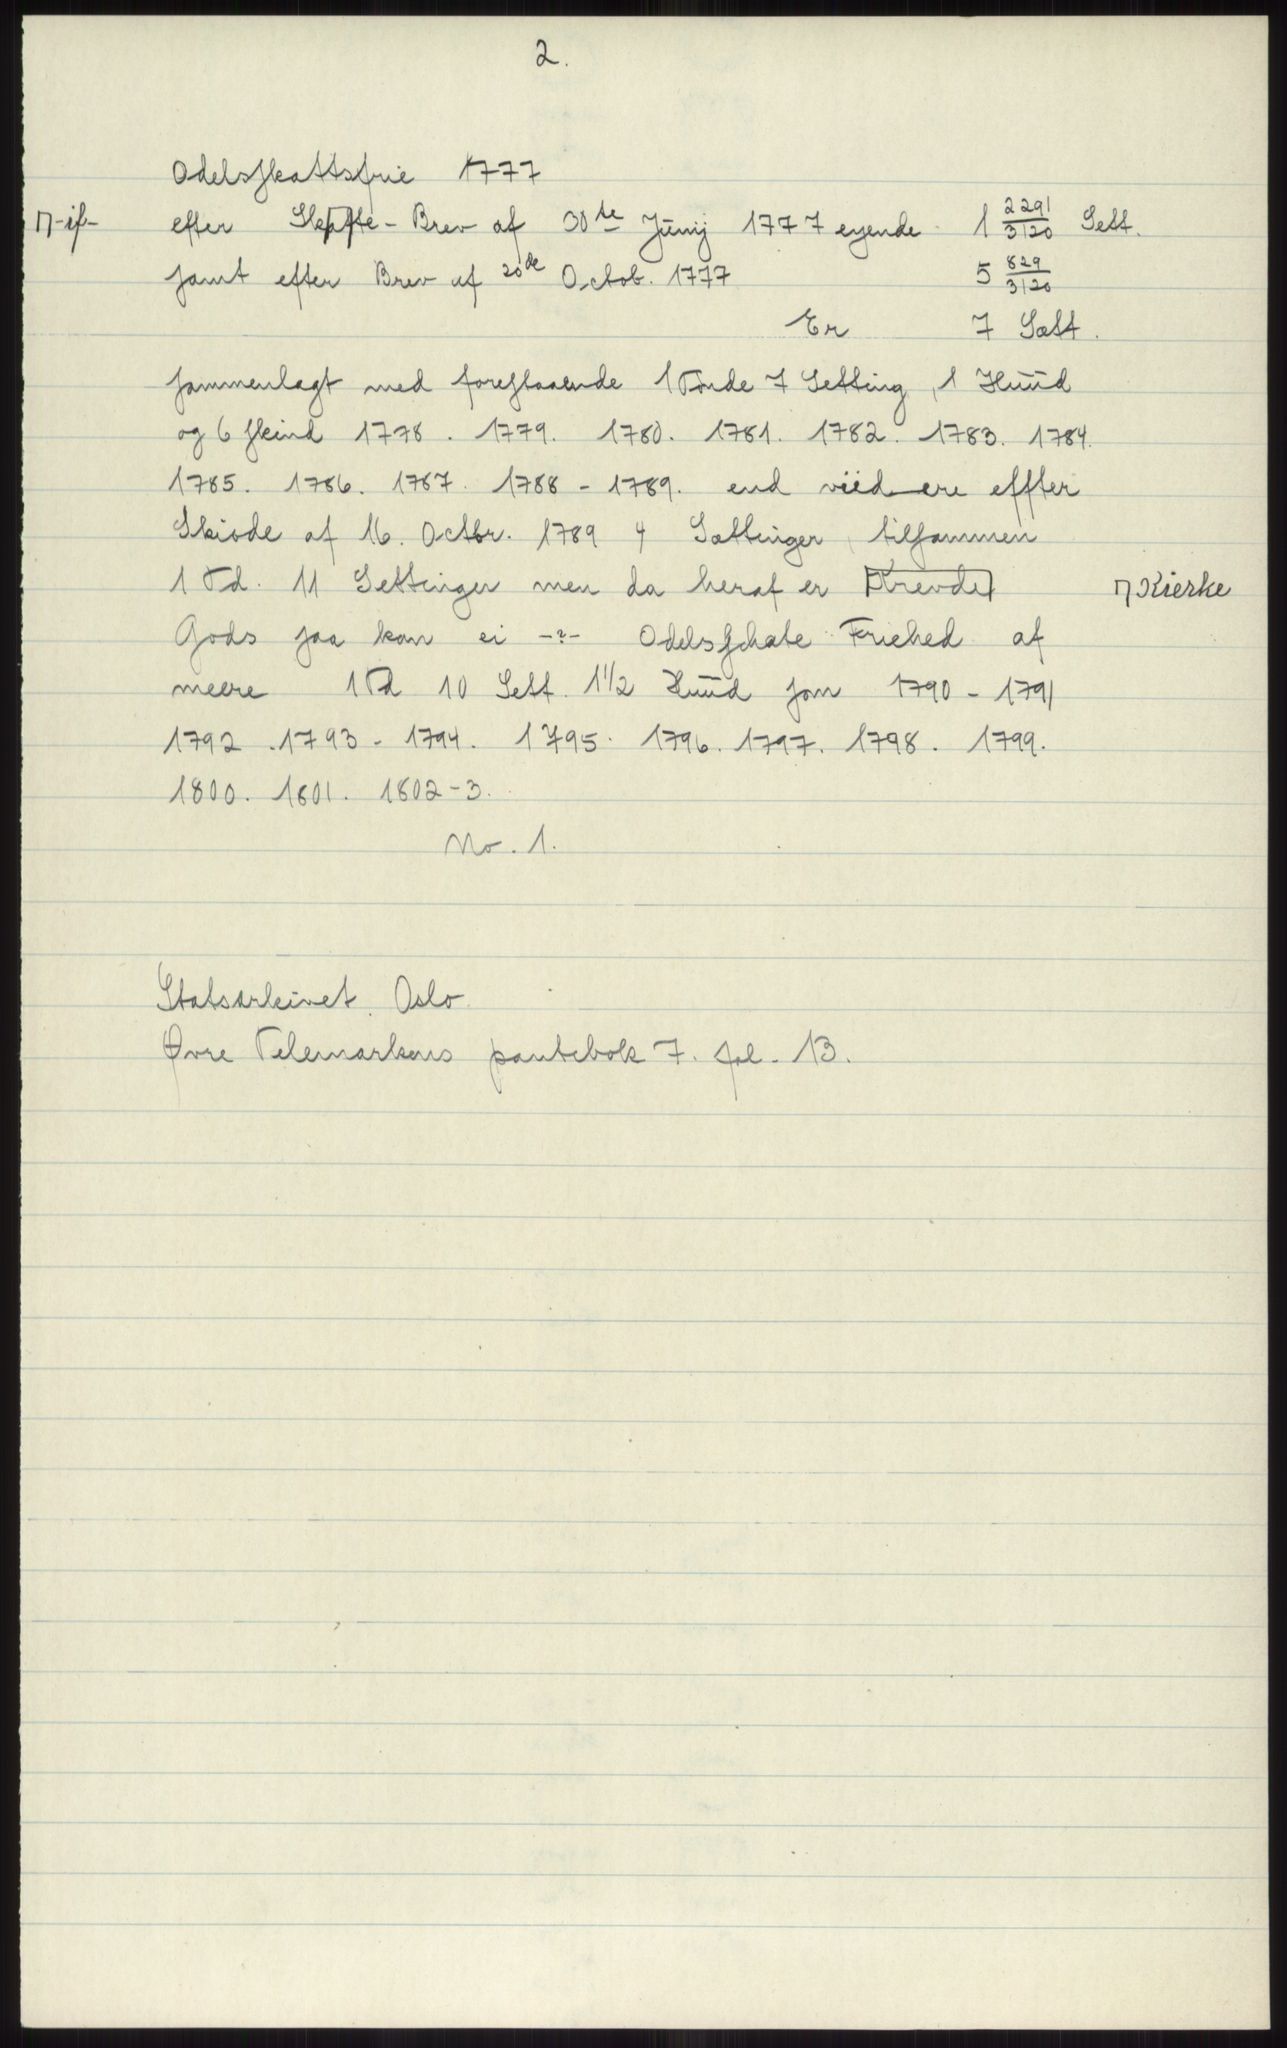 2.
Odelsskattsfrie 1777
⊓-if- efter Skpfte-Brev af 30te Junij 1777 eyende 1 2291/3120 Sett.
samt efter Brev af 20de Octob. 1777 5 829/3120
Er 7 Sætt.
sammenlagt med forestaaende 1 Tønde 7 Setting, 1 Huud
og 6 skind 1778. 1779. 1780. 1781. 1782. 1783. 1784.
1785. 1786. 1787. 1788 - 1789. end viidere effter
Skiøde af 16. Octbr. 1789 4 Sættinger tilsammen
1 Td. 11 Settinger men da heraf er ⊓Kierke
Gods saa kan ei -?- Odelsschate Friehed af
meere 1 Td 10 Sett. 1 1/2 Huud som 1790 - 1791
1792. 1793 - 1794. 1795. 1796. 1797. 1798. 1799.
1800. 1801. 1802-3.
No. 1.
Statsarkivet, Oslo.
Øvre Telemarkens pantebok 7. fol. 13.